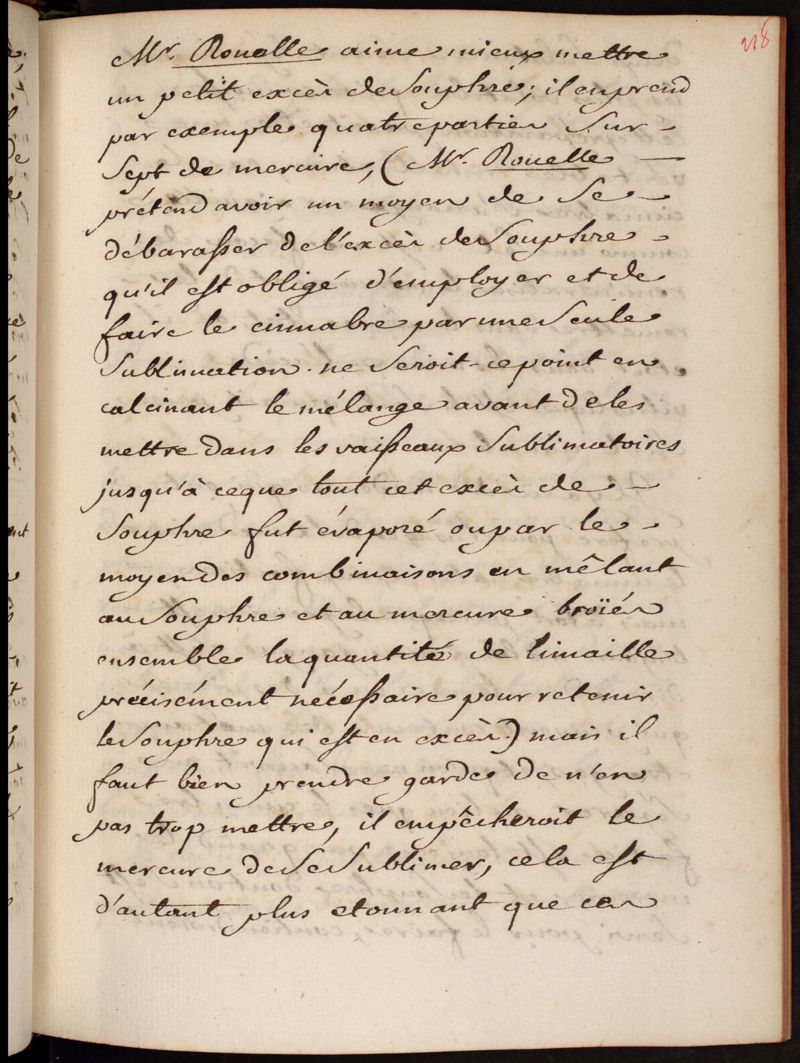 218
Mr. Rouelle aime mieux mettre
un petit excès de Souphre; il en prend
par exemple quatre parties Sur
Sept de mercure, (Mr. Rouelle
prétend avoir un moyen de Se
débarasser de l'excès de Souphre
qu'il est obligé d'employer et de
faire le cinnabre par une Seule
Sublimation. ne Seroit-ce point en
calcinant le mélange avant de les
mettre dans les vaisseaux Sublimatoires
jusqu'à ce que tout cet excès de
Souphre fut évaporé ou par le
moyen des combinaisons en mêlant
au Souphre et au mercure broïés
ensemble la quantité de limaille
précisément nécessaire pour retenir
le Souphre qui est en excès.) mais il
faut bien prendre garde de n'en
pas trop mettre, il empêcheroit le
mercure de Se Sublimer, cela est
d'autant plus etonnant que ces